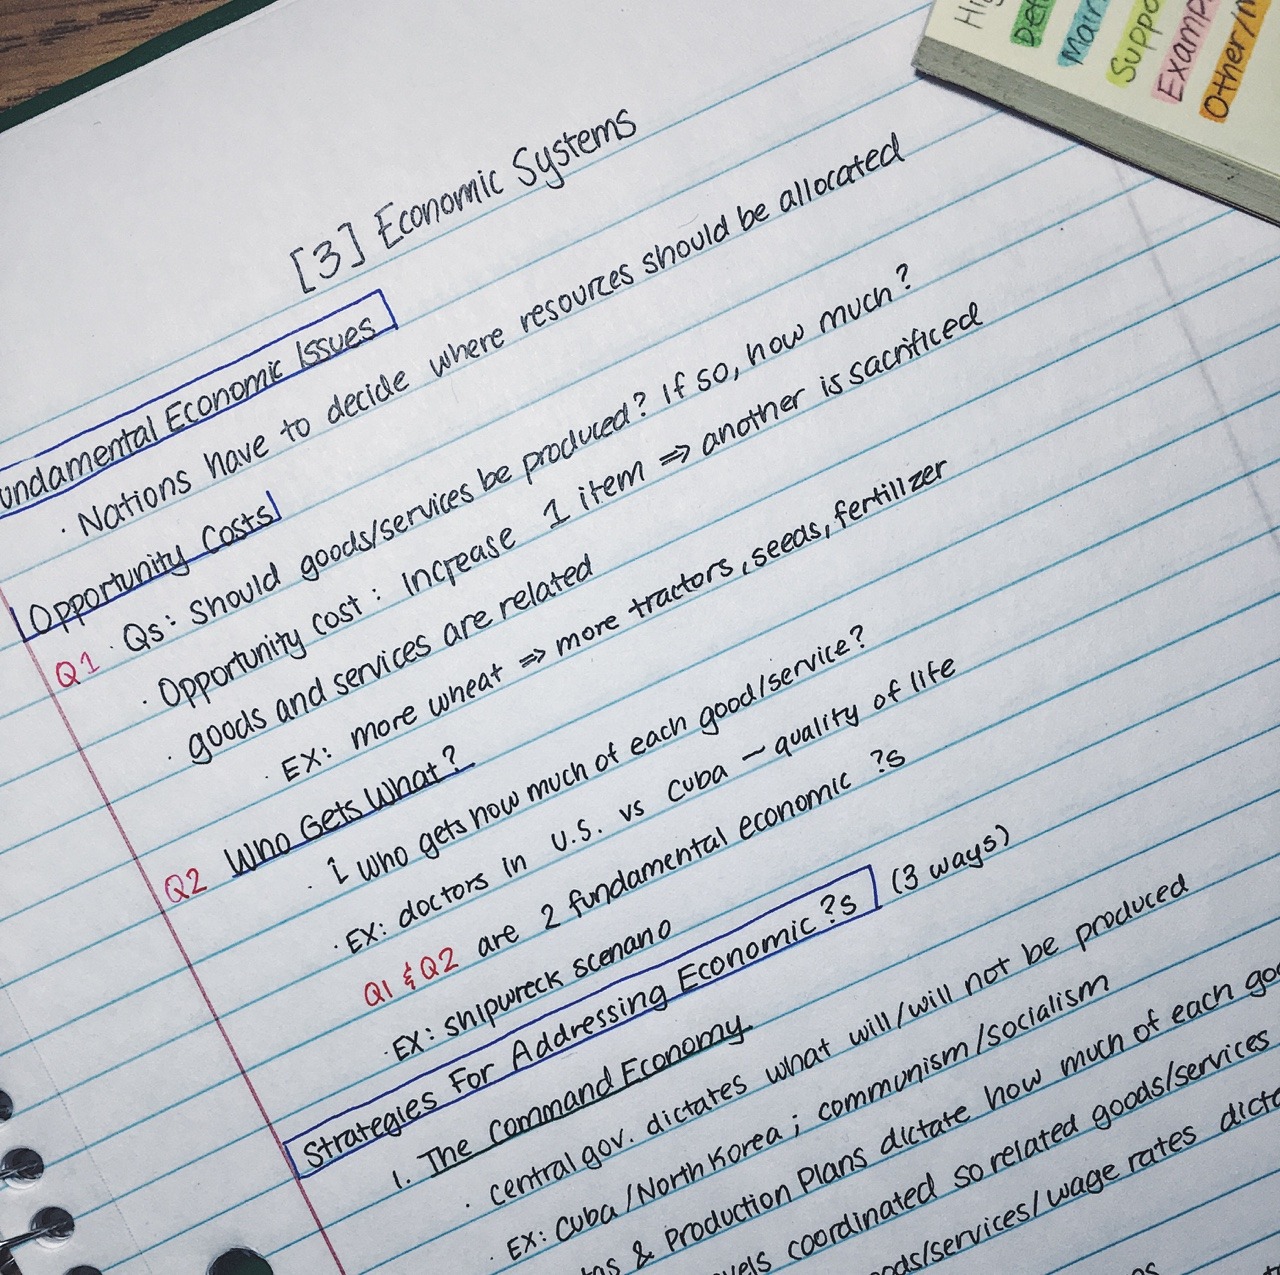 [3] Economic Systems
undamental Economic Issues
· Nations have to decide where resources should be allocated
Opportunity Costs
Q1 · Qs: Should goods/services be produced? If so, how much?
· Opportunity cost: Increase 1 item ⇒ another is sacrificed
· goods and services are related
· EX: more wheat ⇒ more tractors, seeds, fertilizer
Q2 Who Gets What?
· who gets how much of each good/service?
· EX: doctors in U.S. vs Cuba – quality of life
Q1 & Q2 are 2 fundamental economic ?s
· EX: shipwreck scenario
Strategies For Addressing Economic ?s (3 ways)
1. The Command Economy
· central gov. dictates what will/will not be produced
· EX: Cuba/North Korea; communism/socialism
& Production Plans dictate how much of each goo
vels coordinated so related goods/services
ods/services/wage rates dicta
Hi
Def
Main
Suppo
Examp
Other/